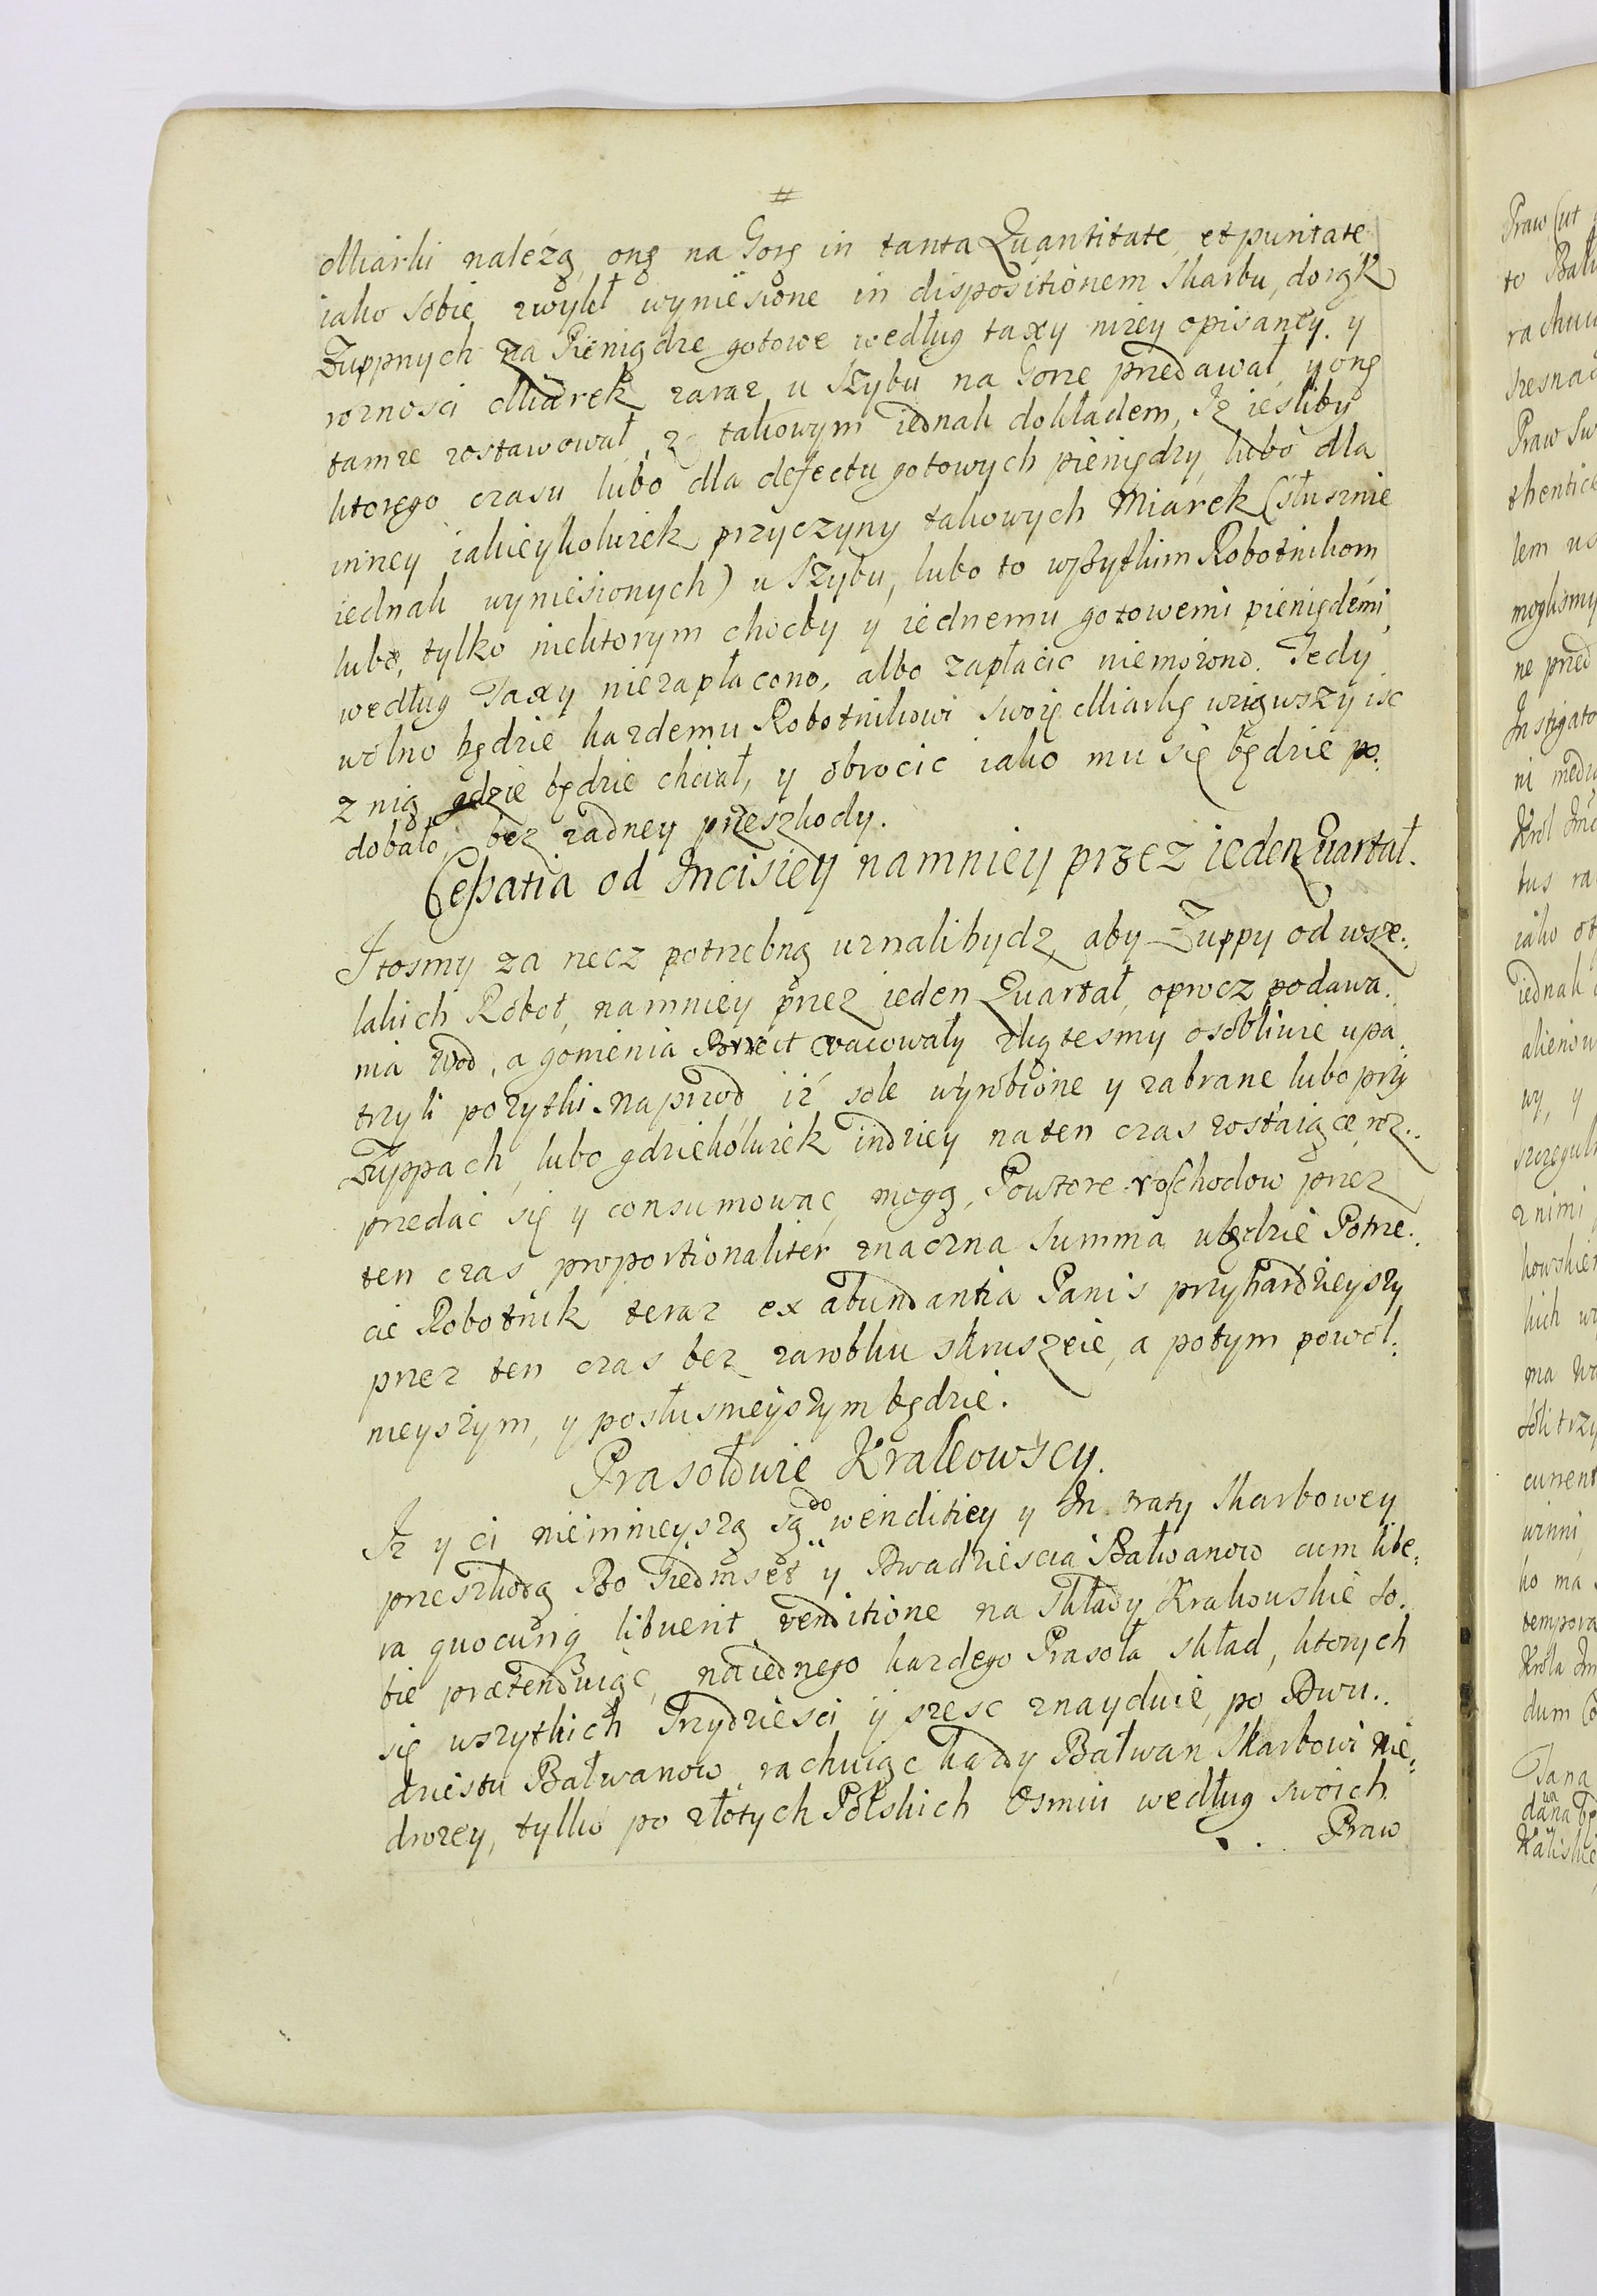 #
Miarki należą, oną na Gorę in tanta Quantitate, et puritate
iako sobie zwykł wyniesione in dispositionem Skarbu, do rąk
Zuppnych za Pieniądze gotowe według taxy niżey opisaney. y
rożnosci Miarek zaraz u Szybu na Gorze przedawał, y oną
tamże zostawował, z takowym iednak dokładem, Iż iesliby
ktorego czasu lubo dla defectu gotowych pieniędzy lubo dla
inney iakieykolwiek przyczyny takowych Miarek (słusznie
iednak wyniesionych) u Szybu, lubo to wszytkim Robotnikom
lubo, tylko niektorym choćby y iednemu gotowemi pieniędzmi,
według Taxy niezapłacono, albo zapłacic niemożono. Tedy
wolno będzie każdemu Robotnikowi swoię Miarkę wziąwszy iśc
z nią gdzie będzie chciał, y obrocic iako mu się będzie po:
dobało bez żadney przeszkody.
Cessatia od Incisiey namniey przez ieden Quartał.
Itosmy za rzecz potrzebną uznali bydz, aby Zuppy od wsze:
lakich Robot, namniey przez ieden Quartał, oprocz podawa:
nia Wod, a gonienia vacowały zkąteśmy osobliwie upa:
trzyli pożytki. naprzod iż sole wyrobione y zabrane lubo przy
Zuppach, lubo gdziekolwiek indziey na ten czas zostaiące, roz:
przedać się y consumowac mogą, Powtore roschodow przez
ten czas proportionaliter znaczna Summa ubędzie Potrze:
cie Robotnik teraz ex abundantia Panis przyhardzieyszy
przez ten czas bez zarobku skruszeie, a potym powol:
nieyszym, y posłusnieyszym będzie.
Prasołowie Krakowscy.
Iż y ci niemnieyszą są do wenditiey y In traty Skarbowey
przeszkodą Bo Siedmset y Dwadziescia Bałwanow cum libe:
ra quocunq libuerit venditione na Składy Krakowskie so:
bie prætenduiąc, na iednego każdego Prasoła skład, ktorych
się wszytkich Trzydziesci y szesc znayduie, po Dwu:
dziestu Bałwanow, rachuiąc każdy Bałwan Skarbowi nie:
drozey, tylko po złotych Polskich Osmiu według swoich
Praw